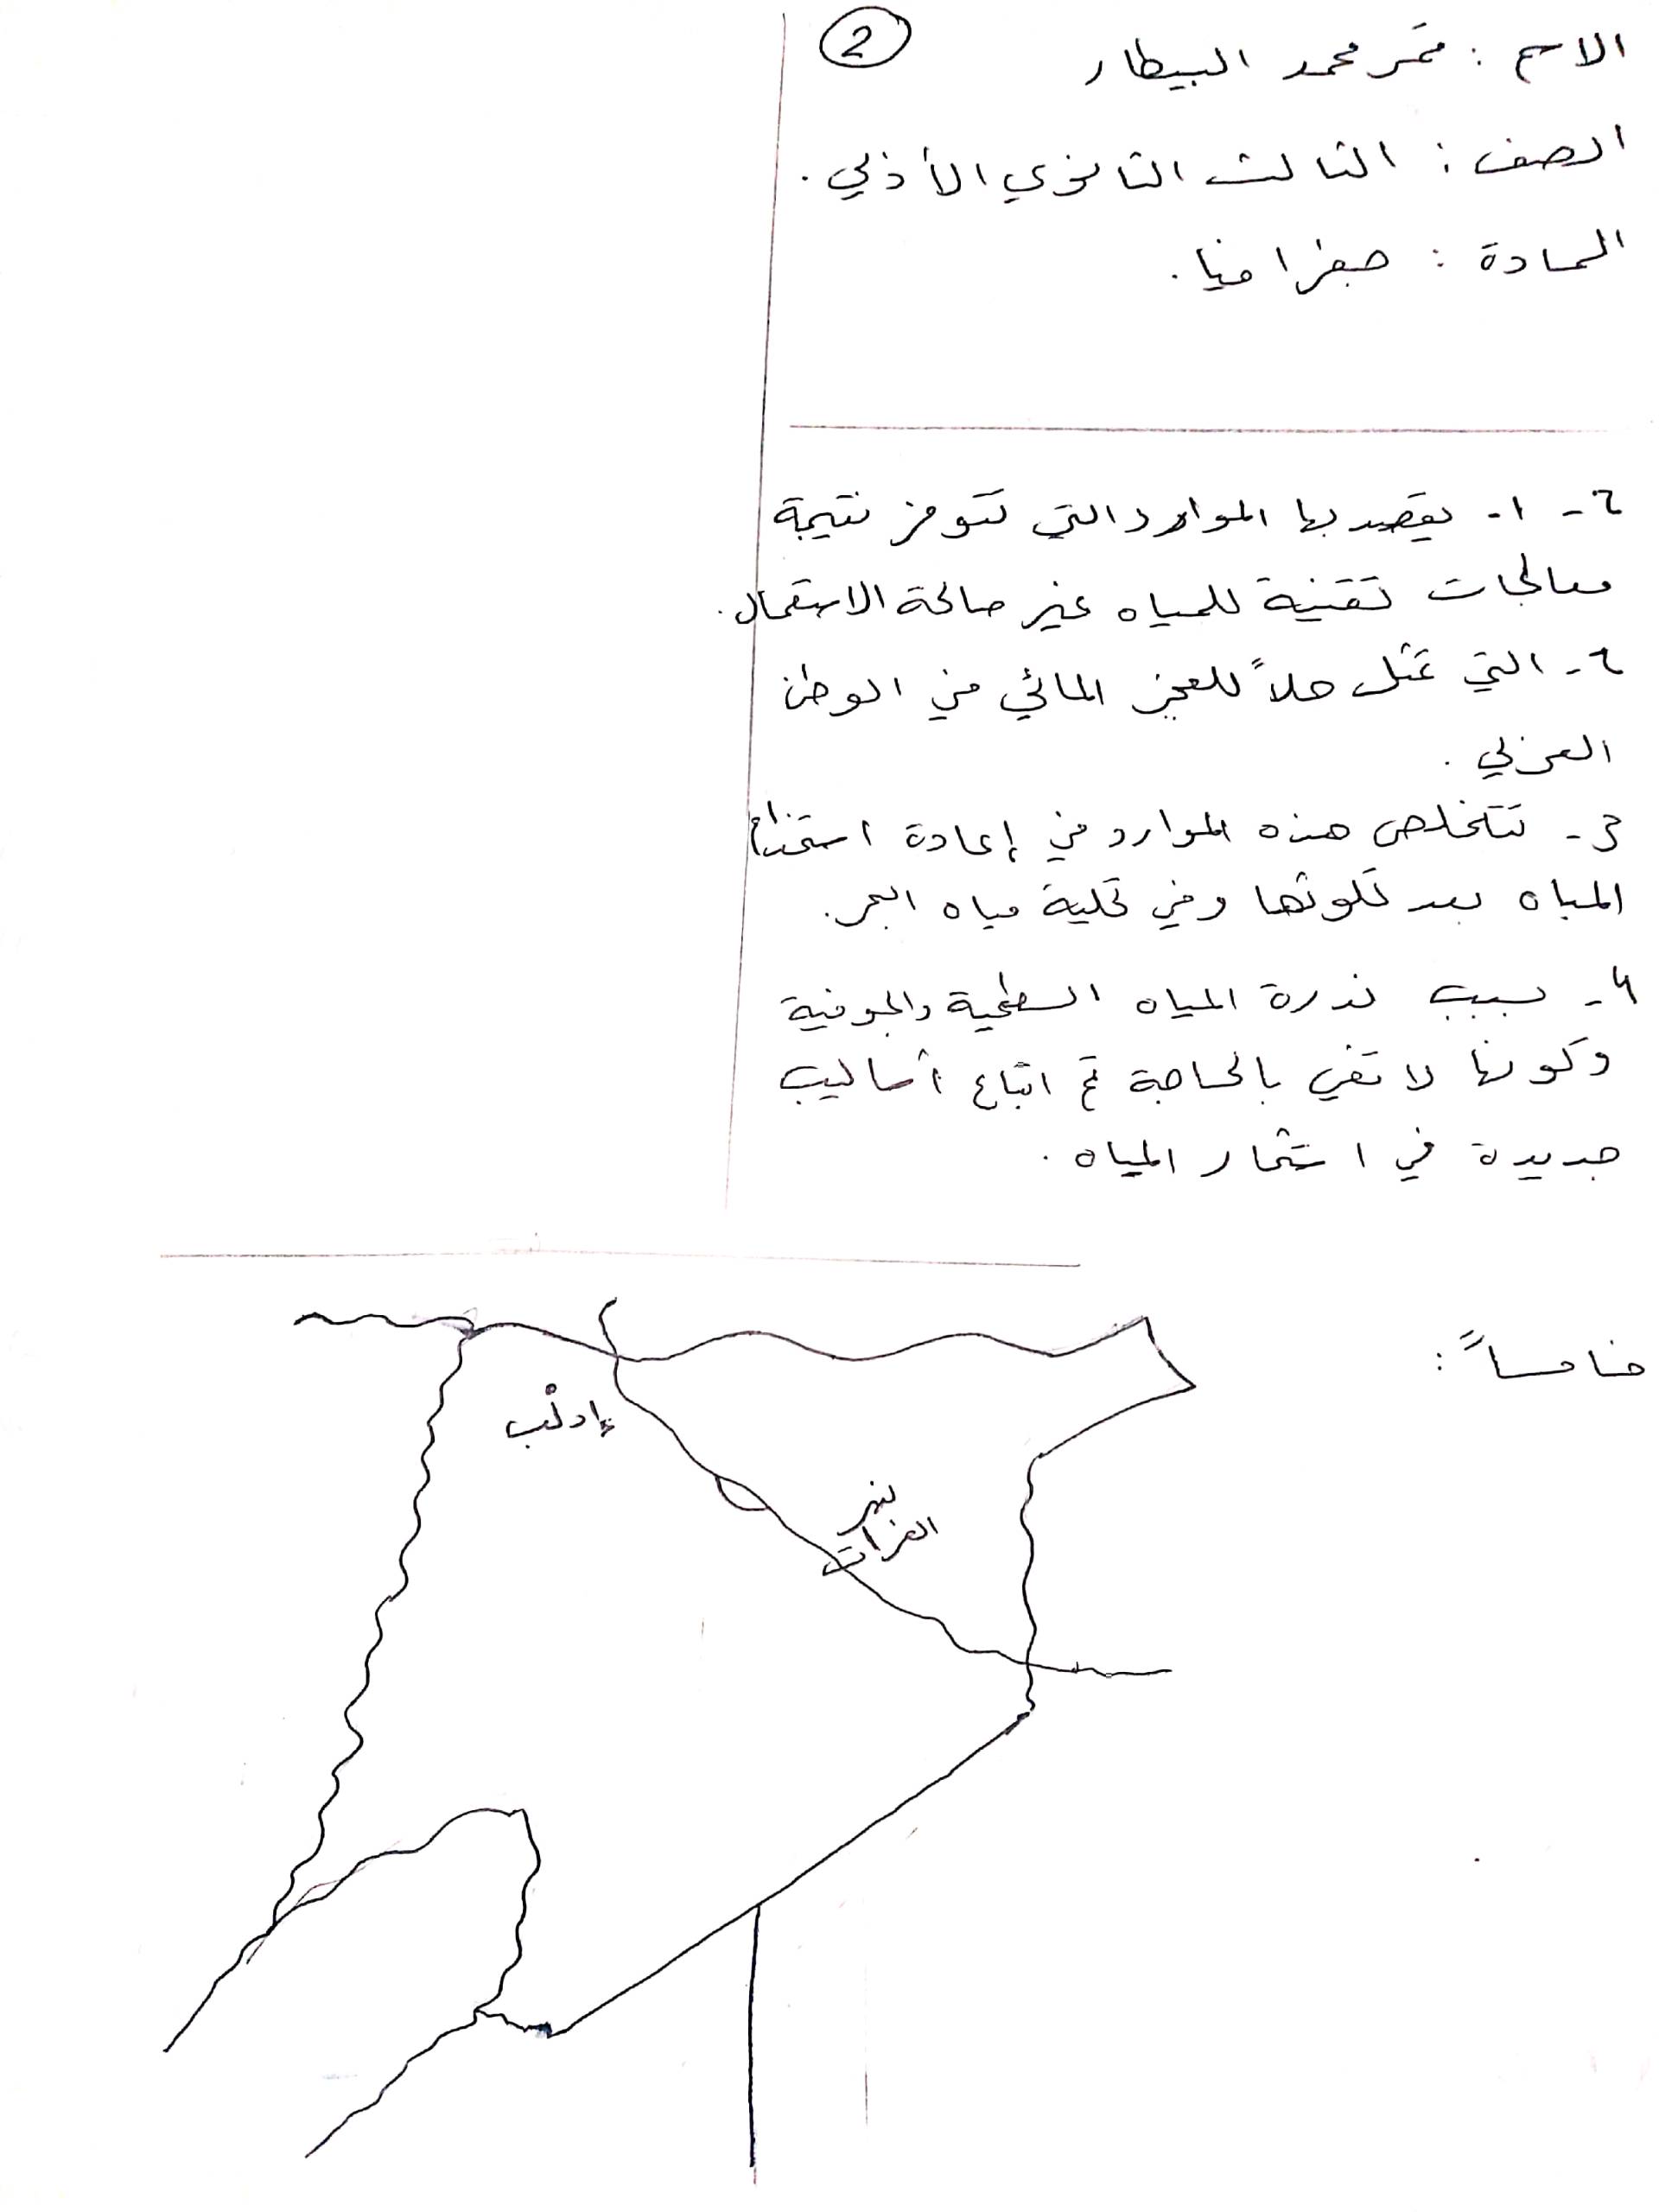 2
الاسم : قمر محمد البيطار
الصف : الثالث الثانوي الأدبي .
المادة : جغرافيا .
٢- ١- يقصد بها الموارد التي تتوفر نتيجة
معالجات تقنية للمياه غير صالحة الاستعمال .
٢- التي تمثل حلاً للعجز المائي في الوطن
العربي .
3- تتلخص هذه الموارد في إعادة استخدام
المياه بعد تلوثها وفي تحلية مياه البحر .
4- بسبب ندرة المياه السطحية والجوفية
وكونها لا تفي بالحاجة تم اتباع أساليب
جديدة في استثمار المياه .
خامساً :
إدلب
نهر
الفرات